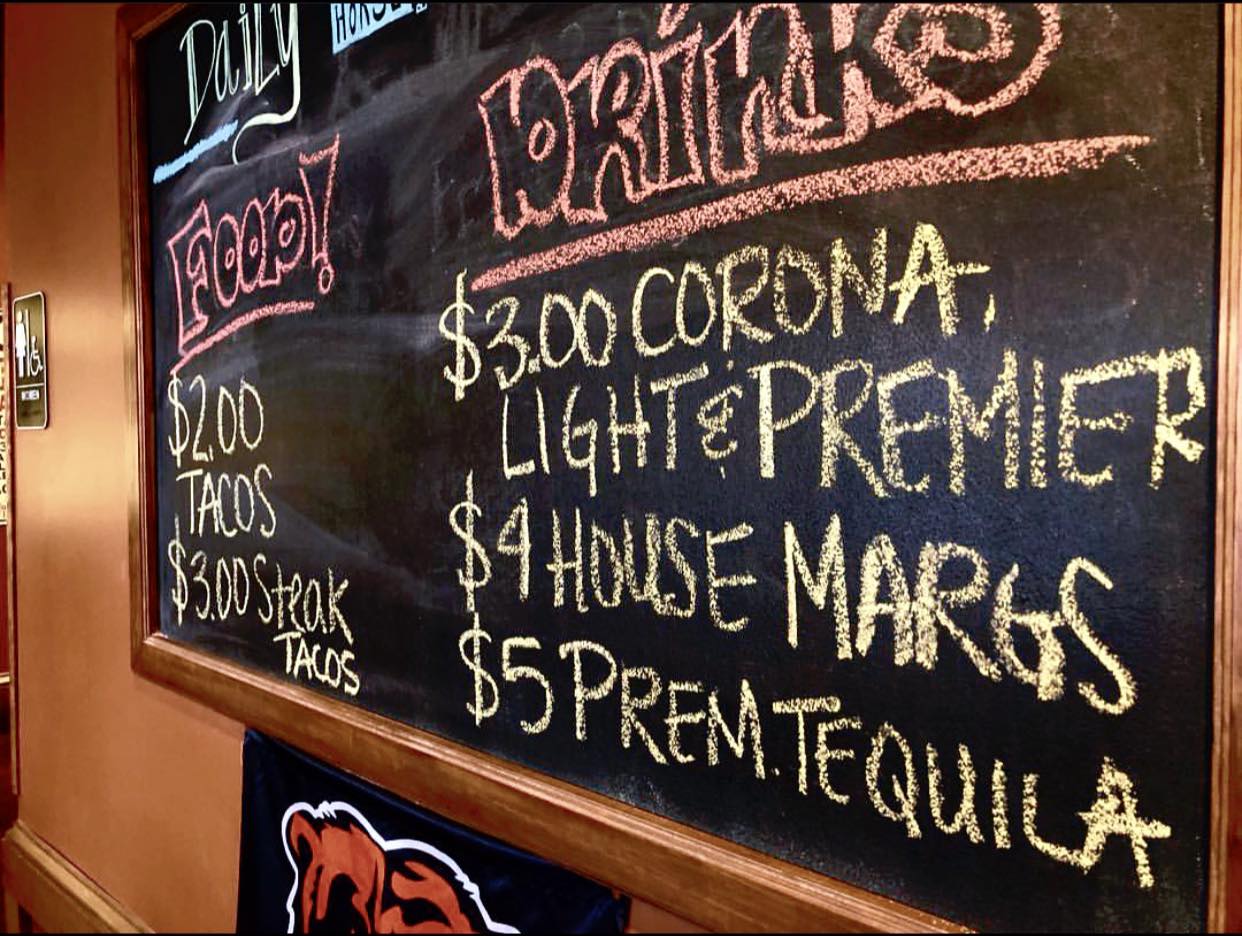 Daily
Food!
$2.00
TACOS
$3.00 Steak
TACOS
DRINKS
$3.00 CORONA,
LIGHT & PREMIER
$4 HOUSE MARGS
$5 PREM. TEQUILA